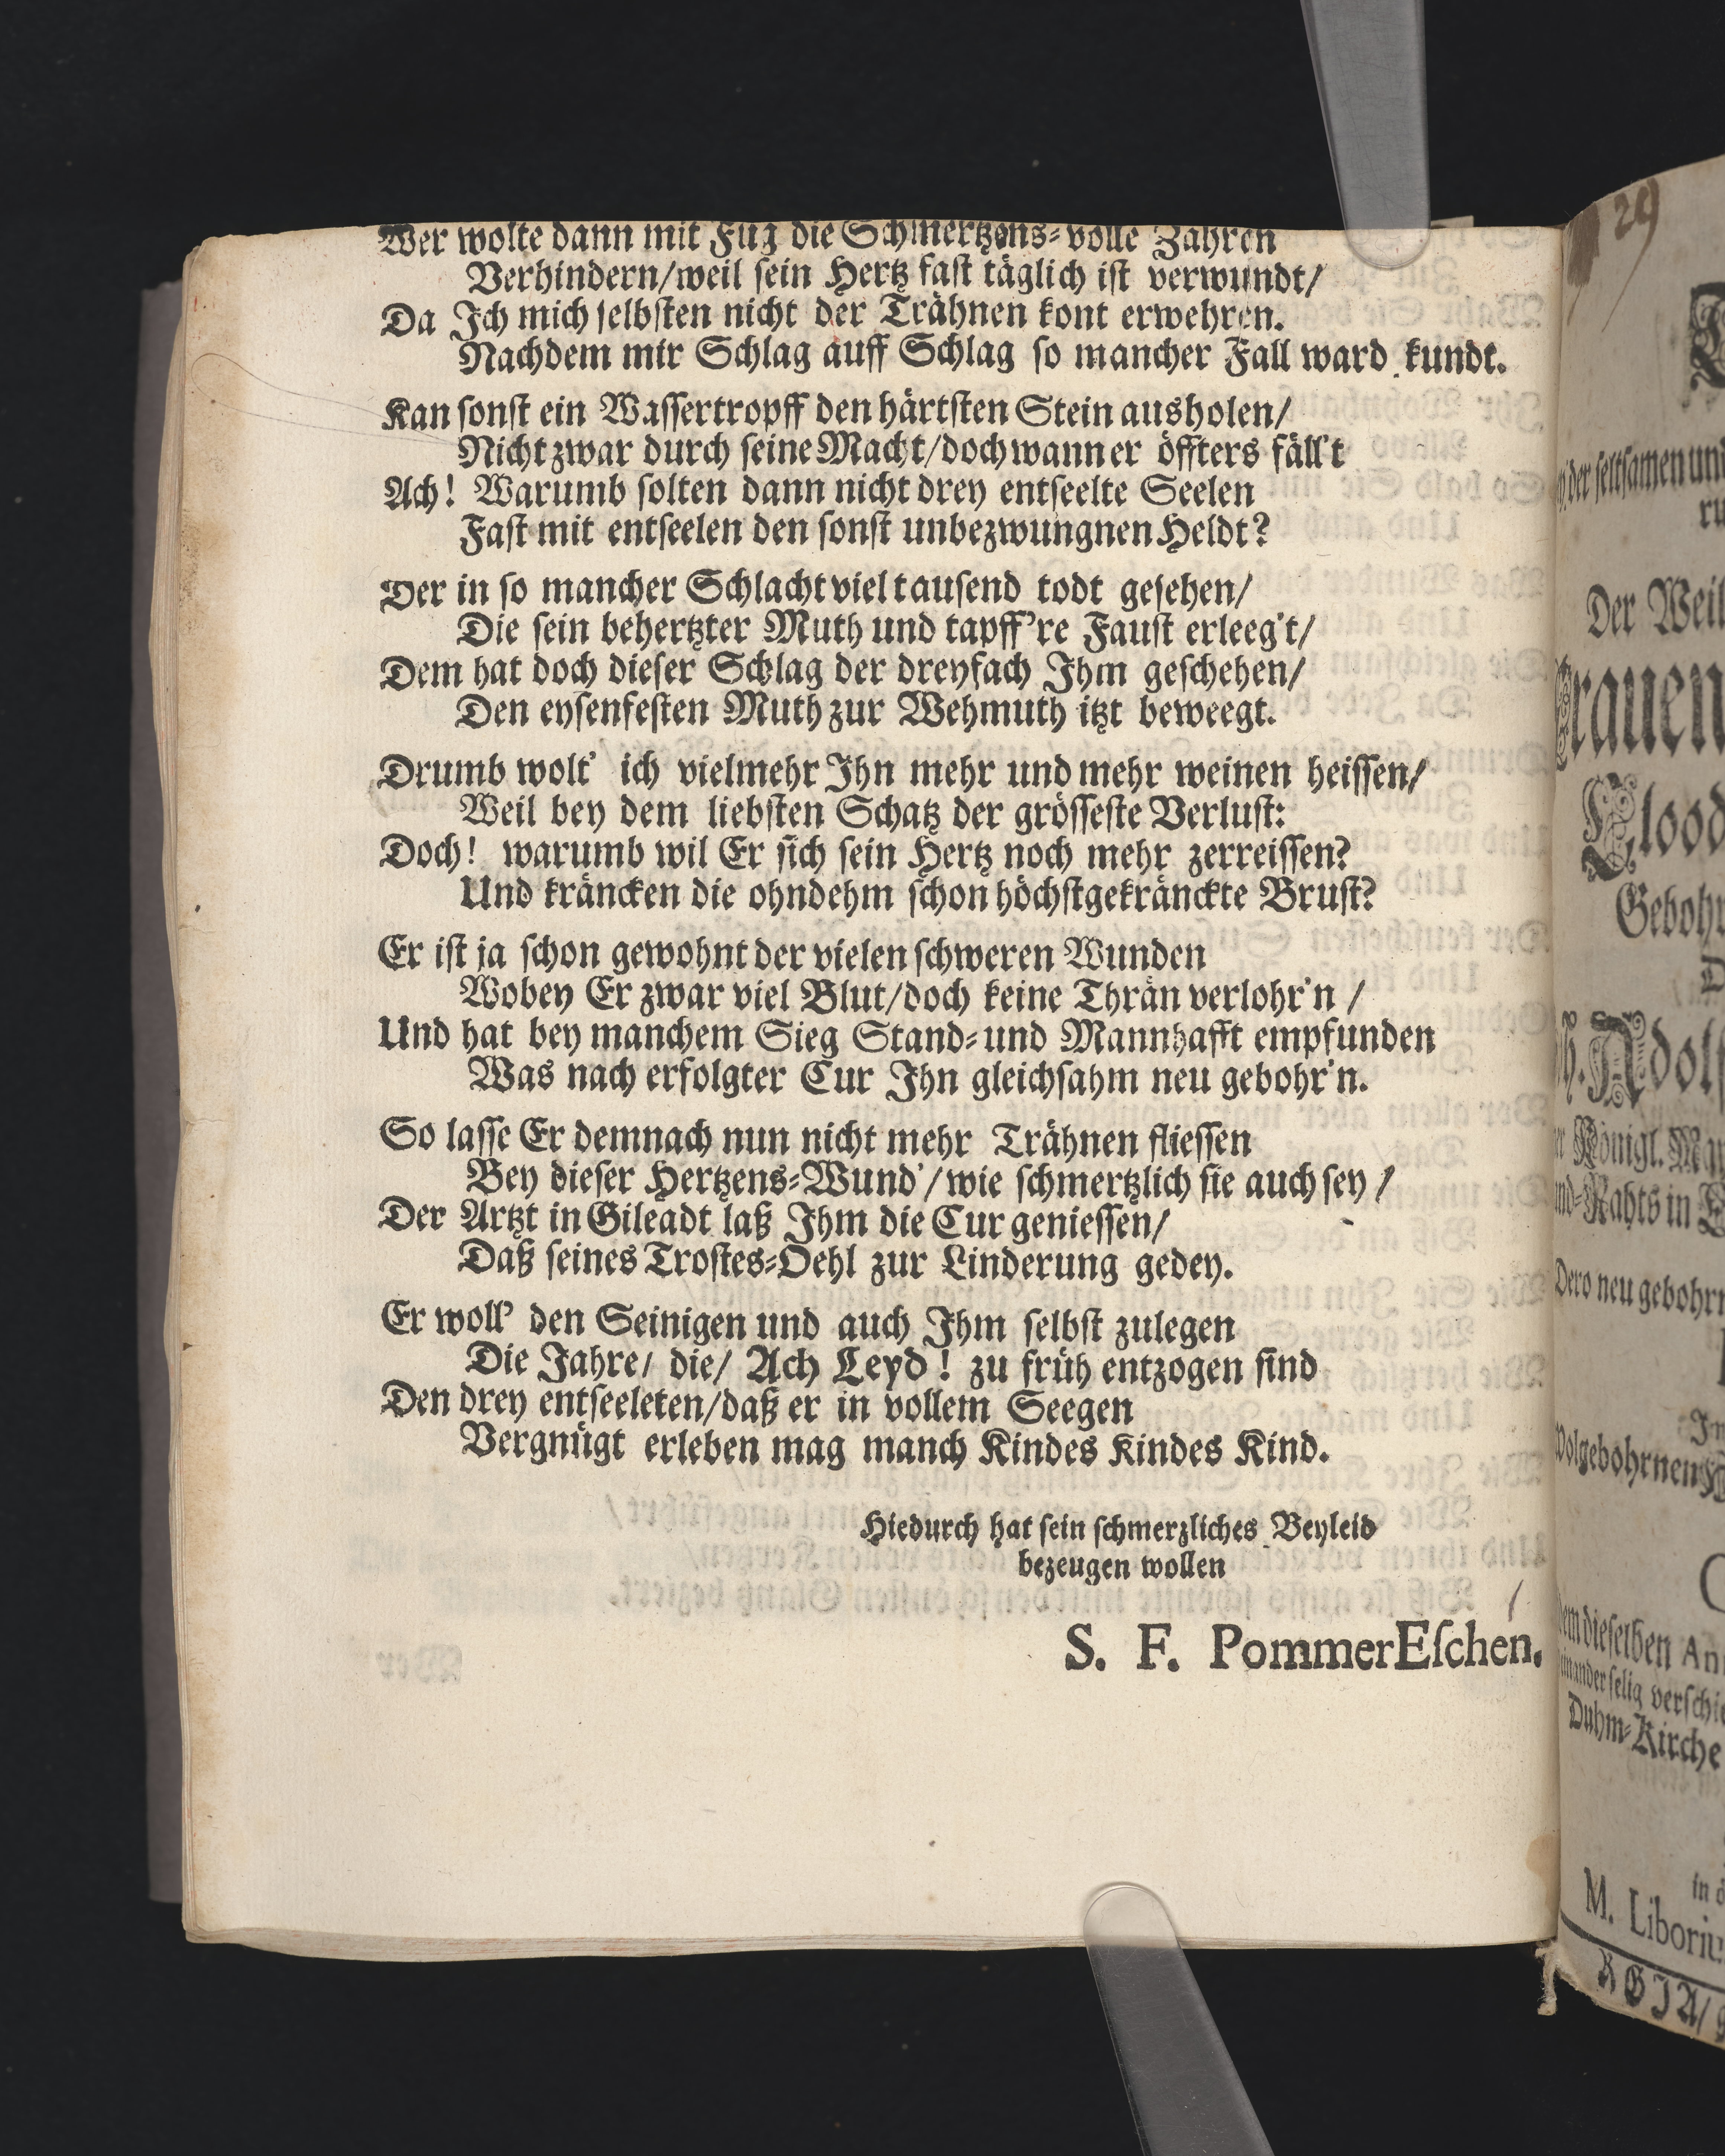 Wer wolte dann mit Fug die Schmertzens-volle Zähren
Verhindern/weil sein Hertz fast täglich ist verwundt/
Da Ich mich selbsten nicht der Trähnen kont erwehren.
Nachdem mir Schlag auff Schlag so mancher Fall ward kundt.
Kan sonst ein Wassertropff den härtsten Stein ausholen/
Nicht zwar durch seine Macht/doch wann er öffters fäll't
Ach! Warumb solten dann nicht drey entseelte Seelen
Fast mit entseelen den sonst unbezwungnen Heldt?
Der in so mancher Schlacht viel tausend todt gesehen/
Die sein behertzter Muth und tapff're Faust erleeg't/
Dem hat doch dieser Schlag der dreyfach Ihm geschehen/
Den eysenfesten Muth zur Wehmuth itzt beweegt.
Drumb wolt' ich vielmehr Ihn mehr und mehr weinen heissen/
Weil bey dem liebsten Schatz der grösseste Verlust:
Doch! warumb wil Er sich sein Hertz noch mehr zerreissen?
Und kräncken die ohndehm schon höchstgekränckte Brust?
Er ist ja schon gewohnt der vielen schweren Wunden
Wobey Er zwar viel Blut/doch keine Thrän verlohr'n /
Und hat bey manchem Sieg Stand-und Mannhafft empfunden
Was nach erfolgter Cur Ihn gleichsahm neu gebohr'n.
So lasse Er demnach nun nicht mehr Trähnen fliessen
Bey dieser Hertzens-Wund'/wie schmertzlich sie auch sey /
Der Artzt in Gileadt laß Ihm die Cur geniessen/
Daß seines Trostes-Oehl zur Linderung gedey.
Er woll' den Seinigen und auch Ihm selbst zulegen
Die Jahre/ die/ Ach Leyd! zu früh entzogen sind
Den drey entseeleten/daß er in vollem Seegen
Vergnügt erleben mag manch Kindes Kindes Kind.
Hiedurch hat sein schmerzliches Beyleid
bezeugen wollen
S. F. PommerEschen.
29
der seltsamen
Der Weil
Gebohr
Königl.
in
Dero neu gebohr
dieselben
selig
Duhm-Kirche
M. Liboriu